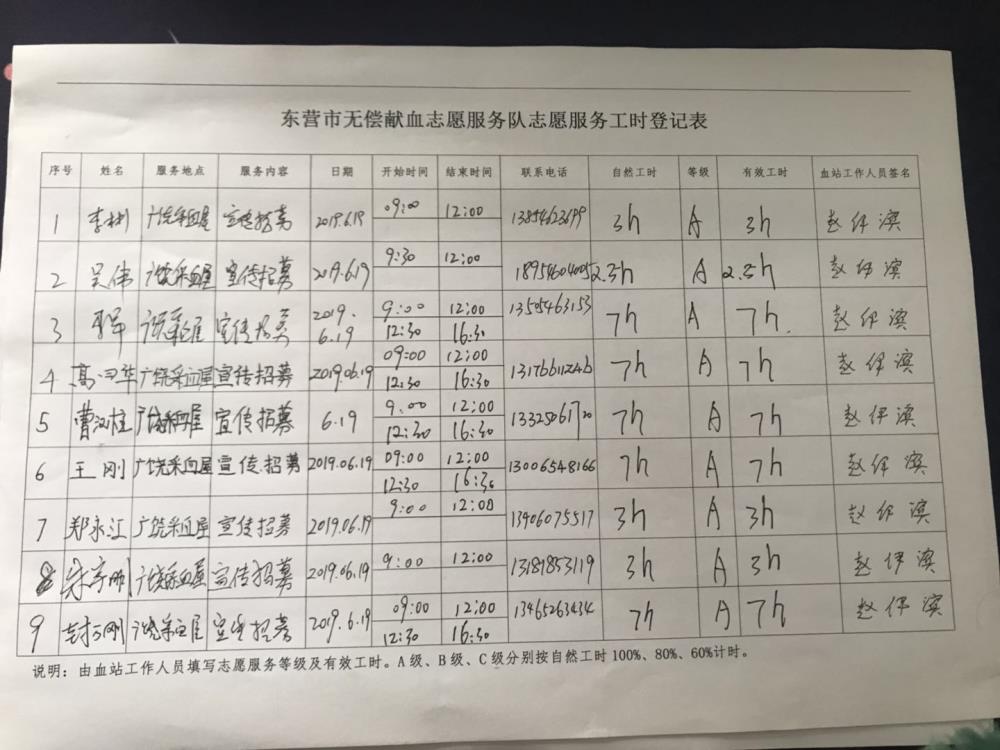 东营市无偿献血志愿服务队志愿服务工时登记表
序号 姓名 服务地点 服务内容 日期 开始时间 结束时间 联系电话 自然工时 等级 有效工时 血站工作人员签名
1 李彬 广饶采血屋 宣传招募 2019.6.19 09:00 12:00 3h A 3h 赵伊滨
2 吴伟 广饶采血屋 宣传招募 2019.6.19 9:30 12:00 18954604005 2.5h A 2.5h 赵伊滨
3 广饶采血屋 宣传招募 2019.6.19 9:00 12:00 13505463153 7h A 7h 赵伊滨
12:30 16:30
4 广饶采血屋 宣传招募 2019.06.19 09:00 12:00 13176611246 7h A 7h 赵伊滨
12:30 16:30
5 曹汉柱 广饶采血屋 宣传招募 6.19 9:00 12:00 13325061720 7h A 7h 赵伊滨
12:30 16:30
6 王刚 广饶采血屋 宣传招募 2019.06.19 09:00 12:00 13006548166 7h A 7h 赵伊滨
12:30 16:30
7 郑永江 广饶采血屋 宣传招募 2019.06.19 9:00 12:00 13406075517 3h A 3h 赵伊滨
8 广饶采血屋 宣传招募 2019.06.19 9:00 12:00 13181853119 3h A 3h 赵伊滨
9 广饶采血屋 宣传招募 2019.6.19 09:00 12:00 13465263434 7h A 7h 赵伊滨
12:30 16:30
说明：由血站工作人员填写志愿服务等级及有效工时。A级、B级、C级分别按自然工时100%、80%、60%计时。